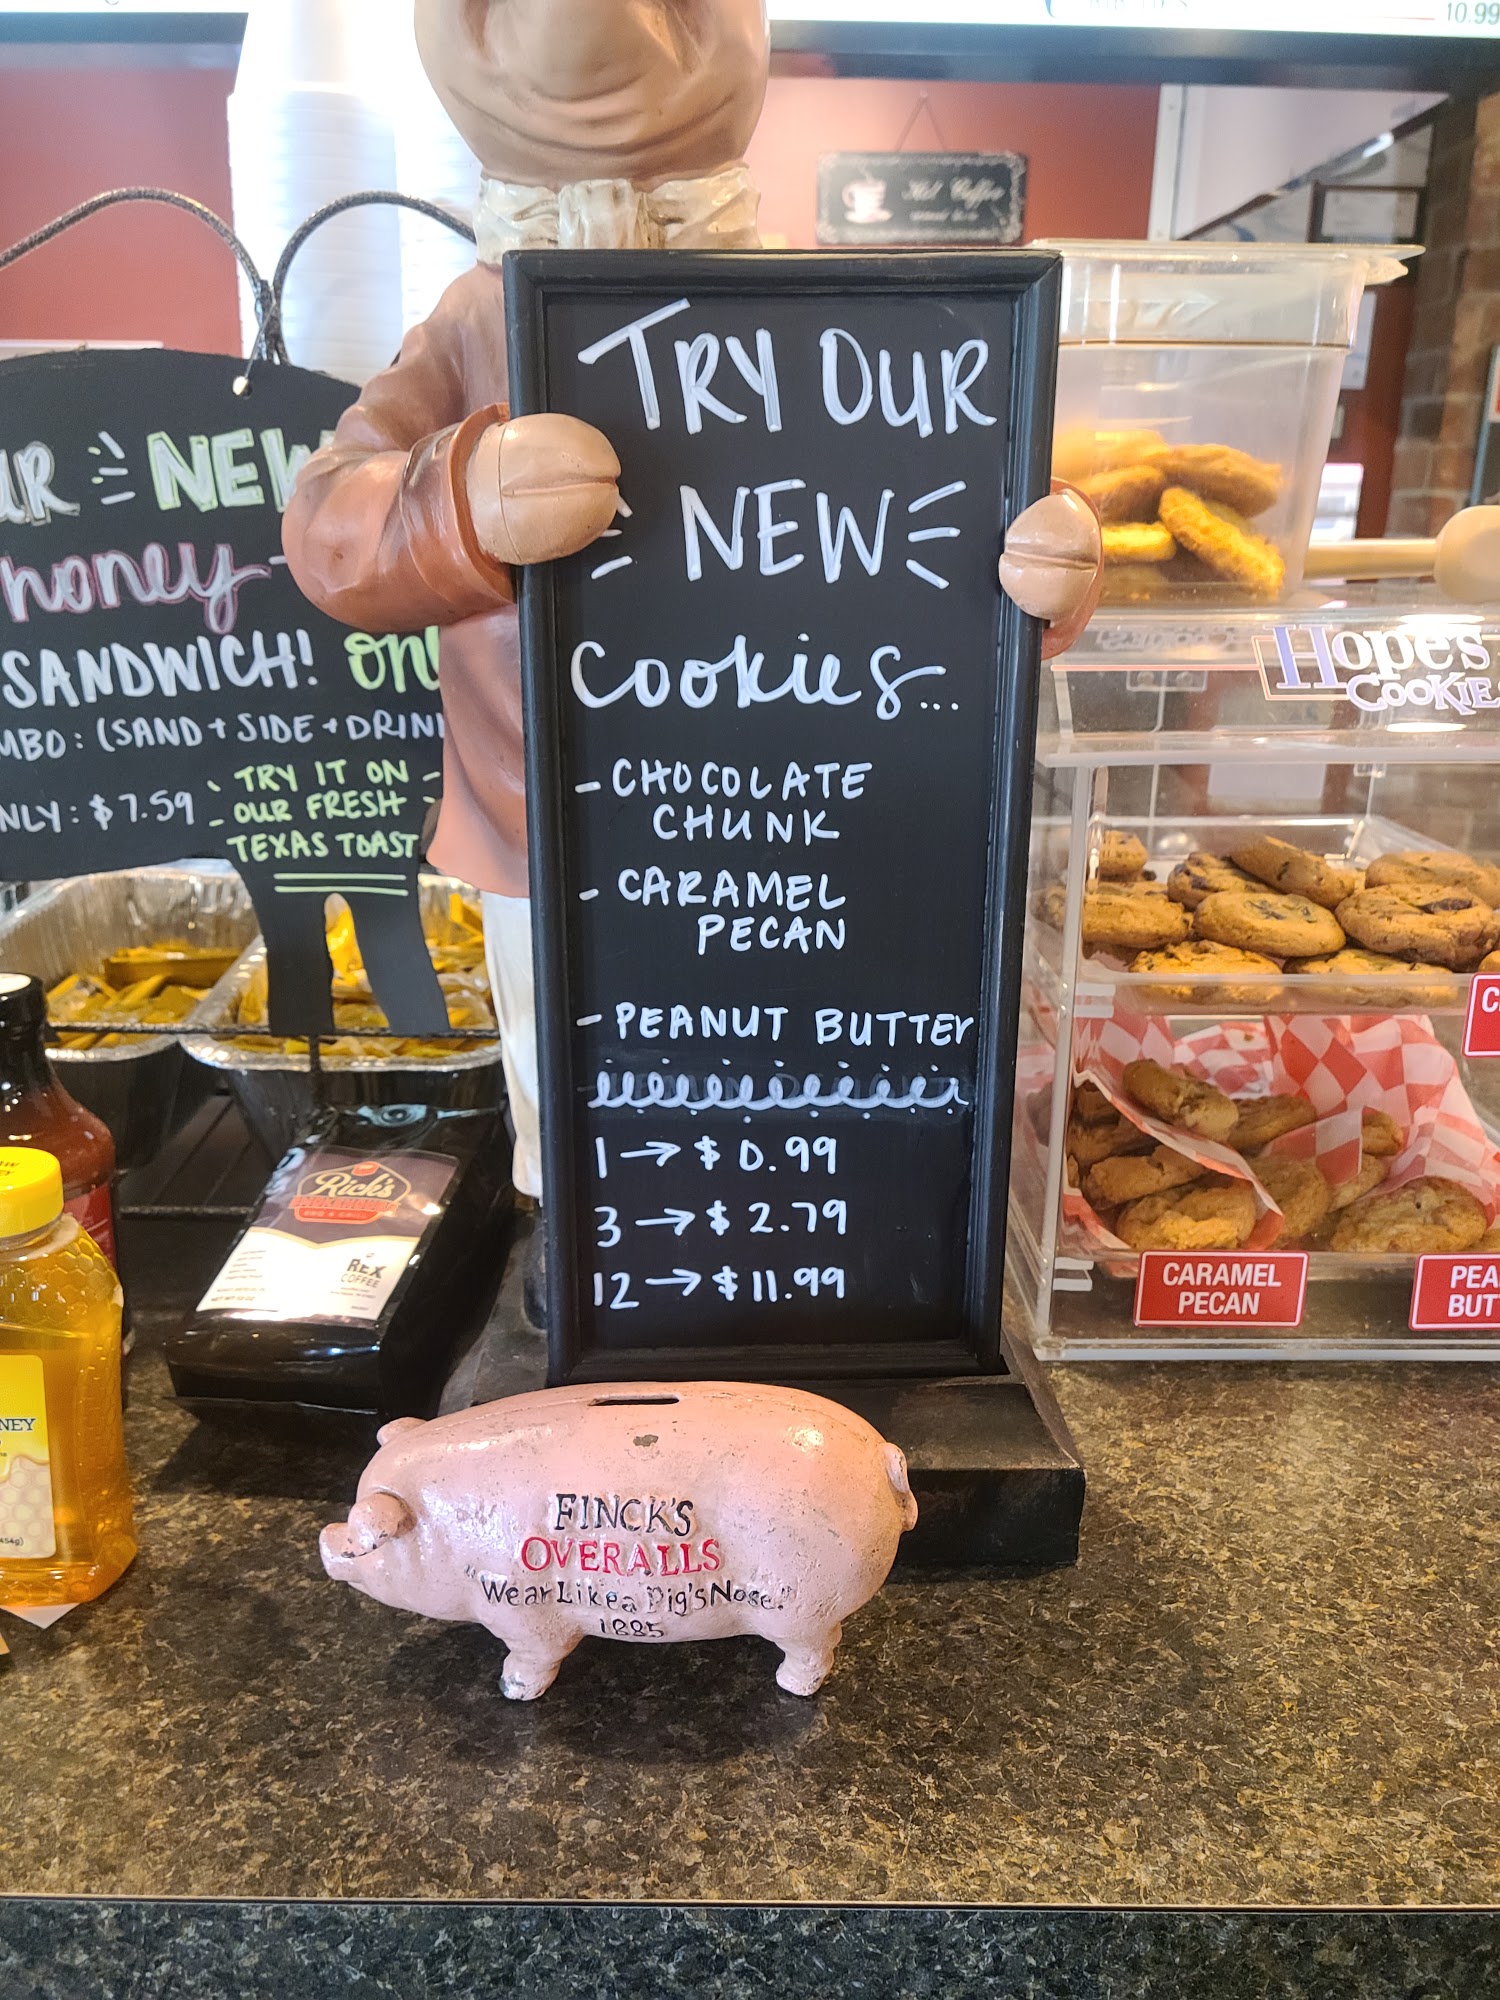 10.99
Hot Coffee
TRY OUR
NEW
Cookies...
- CHOCOLATE
CHUNK
- CARAMEL
PECAN
- PEANUT BUTTER
1 → $ 0.99
3 → $ 2.79
12 → $ 11.99
UR NEW
honey
SANDWICH! ONL
MBO: (SAND + SIDE + DRIN
NLY: $7.59
- TRY IT ON -
- OUR FRESH -
TEXAS TOAST
Hope's
COOKIE
C
CARAMEL
PECAN
PEA
BUT
Rick's
BBQ & GRILL
REX
COFFEE
NEY
454g)
FINCK'S
OVERALLS
"Wear Like a Pig's Nose."
1885